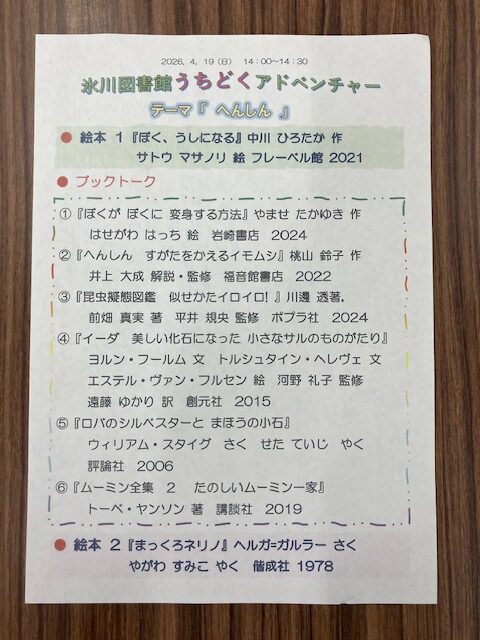 2026. 4. 19（日） 14：00～14：30
氷川図書館うちどくアドベンチャー
テーマ『 へんしん 』
● 絵本 1『ぼく、うしになる』中川 ひろたか 作
サトウ マサノリ 絵 フレーベル館 2021
● ブックトーク
①『ぼくが ぼくに 変身する方法』やませ たかゆき 作
はせがわ はっち 絵 岩崎書店 2024
②『へんしん すがたをかえるイモムシ』桃山 鈴子 作
井上 大成 解説・監修 福音館書店 2022
③『昆虫擬態図鑑 似せかたイロイロ！』川邊 透著，
前畑 真実 著 平井 規央 監修 ポプラ社 2024
④『イーダ 美しい化石になった 小さなサルのものがたり』
ヨルン・フールム 文 トルシュタイン・ヘレヴェ 文
エステル・ヴァン・フルセン 絵 河野 礼子 監修
遠藤 ゆかり 訳 創元社 2015
⑤『ロバのシルベスターと まほうの小石』
ウィリアム・スタイグ さく せた ていじ やく
評論社 2006
⑥『ムーミン全集 2 たのしいムーミン一家』
トーベ・ヤンソン 著 講談社 2019
● 絵本 2『まっくろネリノ』ヘルガ=ガルラー さく
やがわ すみこ やく 偕成社 1978